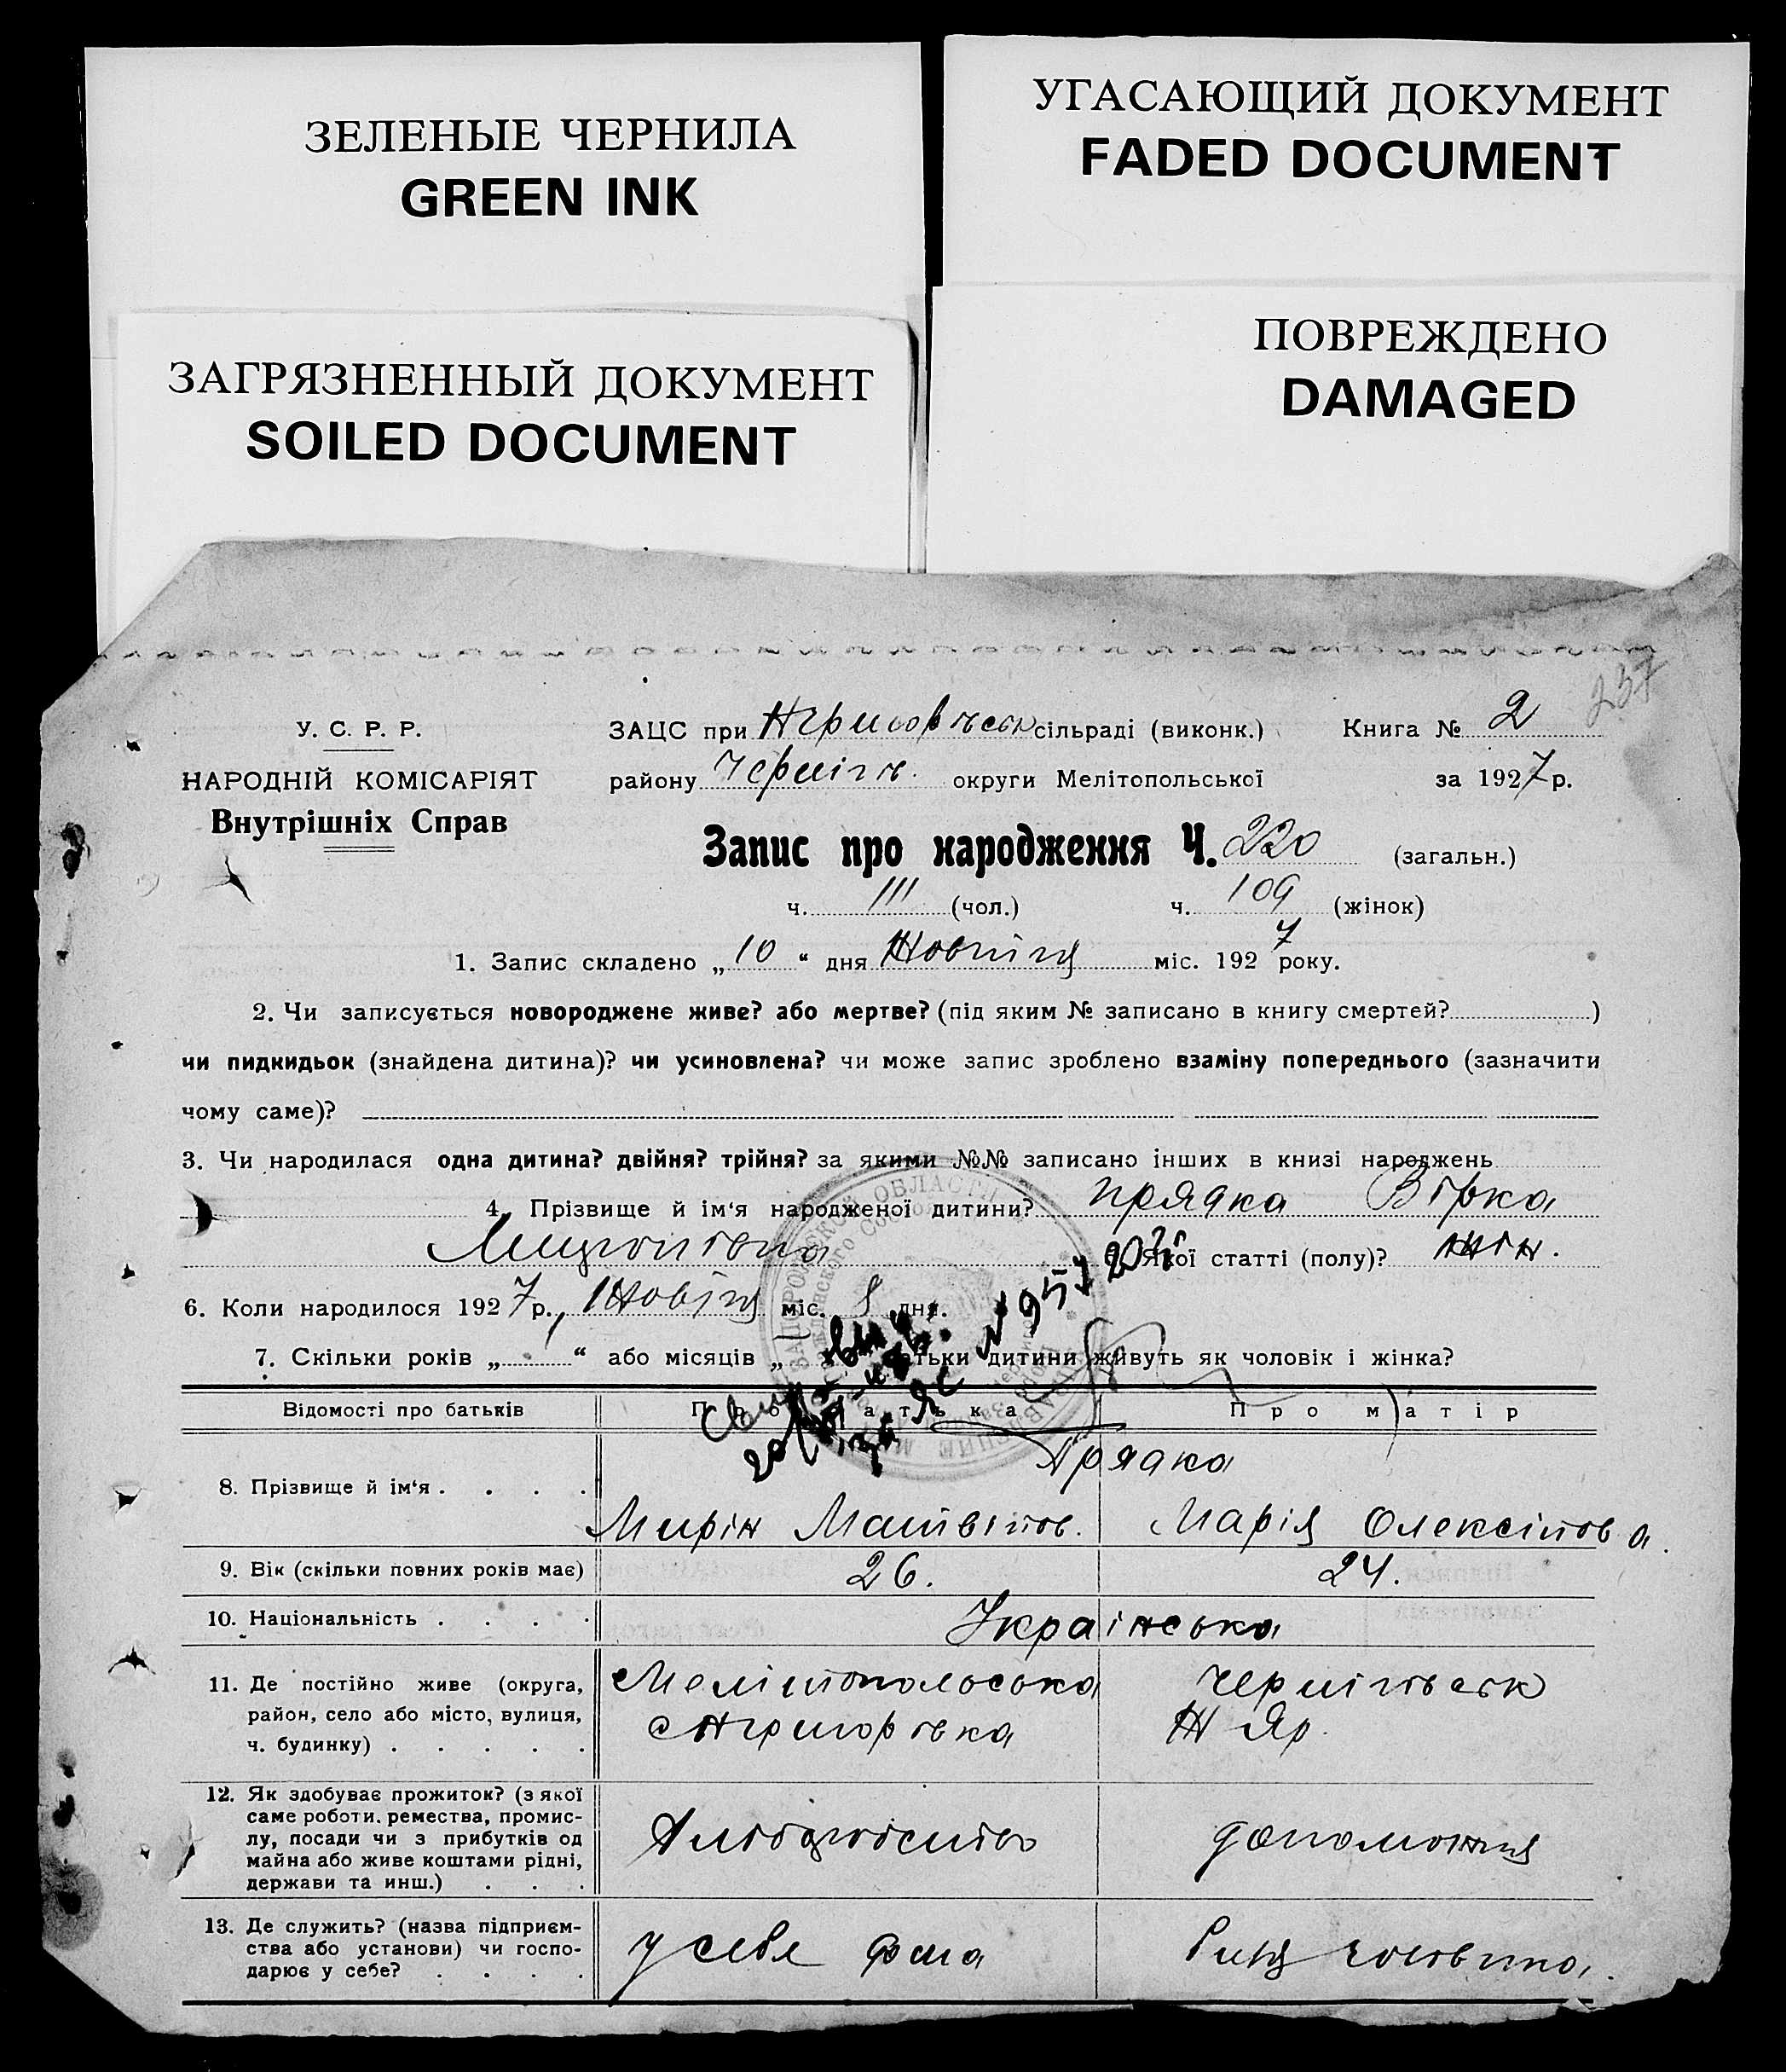 ЗЕЛЕНЫЕ ЧЕРНИЛА
GREEN INK
УГАСАЮЩИЙ ДОКУМЕНТ
FADED DOCUMENT
ЗАГРЯЗНЕННЫЙ ДОКУМЕНТ
SOILED DOCUMENT
ПОВРЕЖДЕНО
DAMAGED
237
У. С. Р. Р.
НАРОДНІЙ КОМІСАРІЯТ
Внутрішніх Справ
ЗАЦС при сільраді (виконк.) Книга № 2
району Черніг округи Мелітопольської за 1927 р.
Запис про народження Ч. 220 (загальн.)
ч. 111 (чол.) ч. 109 (жінок)
1. Запис складено „10“ дня Жовтня міс. 1927 року.
2. Чи записується новороджене живе? або мертве? (під яким № записано в книгу смертей? )
чи пидкидьок (знайдена дитина)? чи усиновлена? чи може запис зроблено взаміну попереднього (зазначити
чому саме)?
3. Чи народилася одна дитина? двійня? трійня? за якими №№ записано інших в книзі народжень
4. Прізвище й ім‘я народженої дитини? Прядка Вірка
Якої статті (полу)? жін.
6. Коли народилося 1927 р., Жовтня міс. 8 дня.
7. Скільки років „ “ або місяців „ батьки дитини живуть як чоловік і жінка?
Відомості про батьків
Про батька
Про матір
8. Прізвище й ім‘я
Прядка
Мирін Матвійов. Марія Олексійова.
9. Вік (скільки повних років має) 26. 24.
10. Національність Українська
11. Де постійно живе (округа, район, село або місто, вулиця, ч. будинку)
Мелітопольська Чернігівськ
Яр.
12. Як здобуває прожиток? (з якої саме роботи, ремества, промислу, посади чи з прибутків од майна або живе коштами рідні, держави та инш.)
13. Де служить? (назва підприємства або установи) чи господарює у себе?
у себе дома